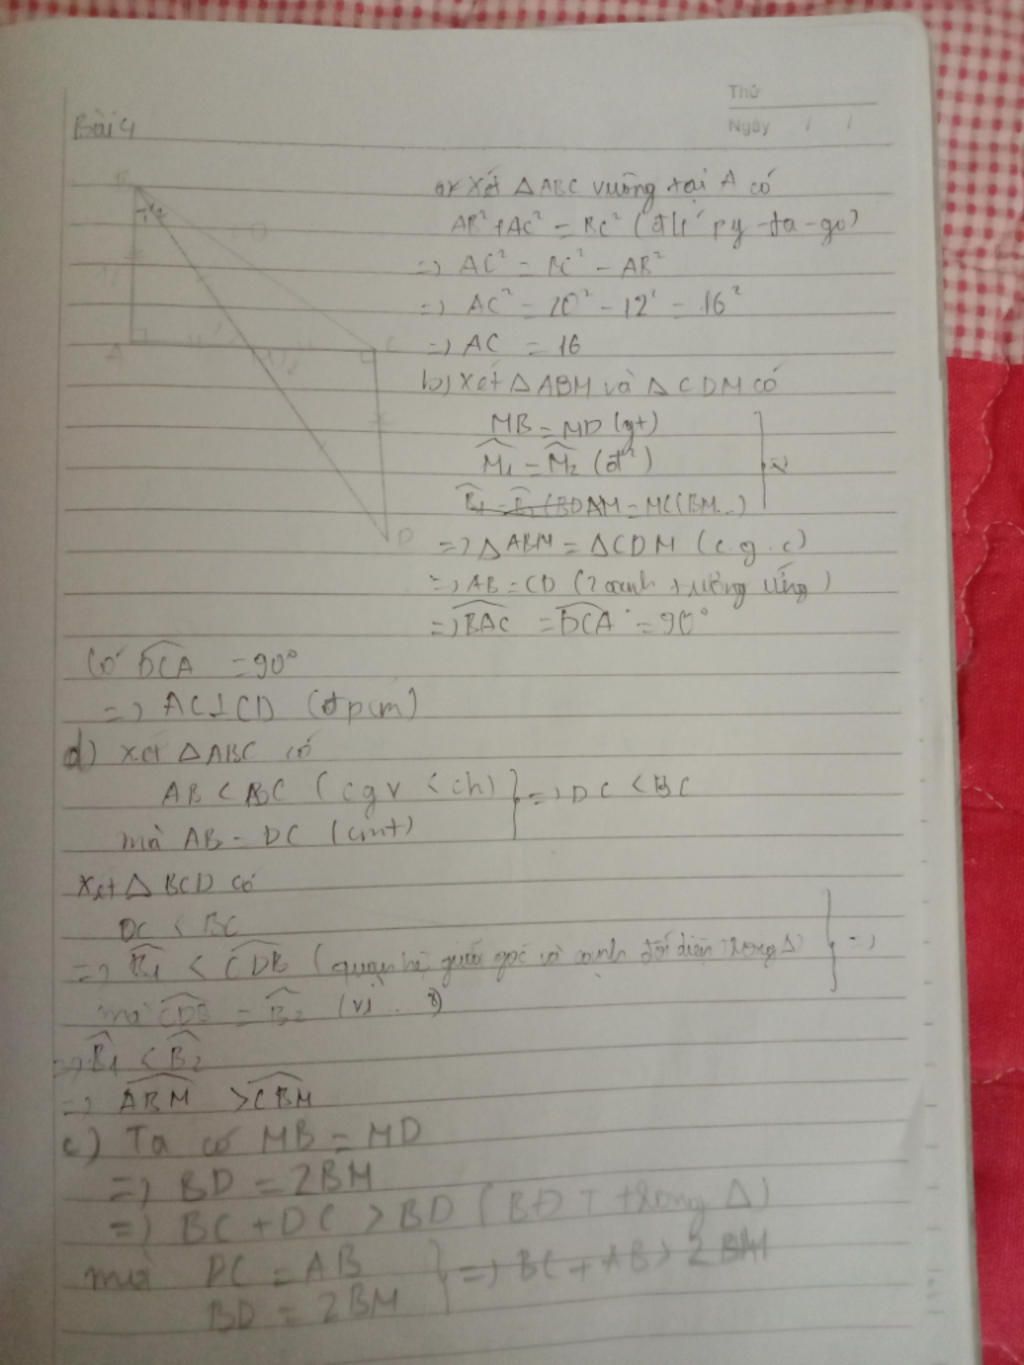 Thứ
Ngày / /
Bài 4
a, Xét △ABC vuông tại A có
AB² + AC² = BC² (đlí py-ta-go)
=> AC² = BC² - AB²
=> AC² = 20² - 12² = 16²
=> AC = 16
b) Xét △ABM và △CDM có
MB = MD (gt)
M₁ = M₂ (đđ)
AM = MC (BM...)
=> △ABM = △CDM (c.g.c)
=> AB = CD (2 cạnh tương ứng)
=> BAC = DCA = 90°
Có DCA = 90°
=> AC⊥CD (đpcm)
d) Xét △ABC có
AB < BC (cgv < ch)
mà AB = DC (cmt)
=> DC < BC
Xét △BCD có
DC < BC
=> B₁ < CDB (quan hệ giữa góc và cạnh đối diện trong △)
=>
mà CDB = B₂ (vì ...)
=> B₁ < B₂
=> ABM > CBM
c) Ta có MB = MD
=> BD = 2BM
=> BC + DC > BD (BĐT trong △)
mà DC = AB
BD = 2BM
=> BC + AB > 2BM
A
C
D